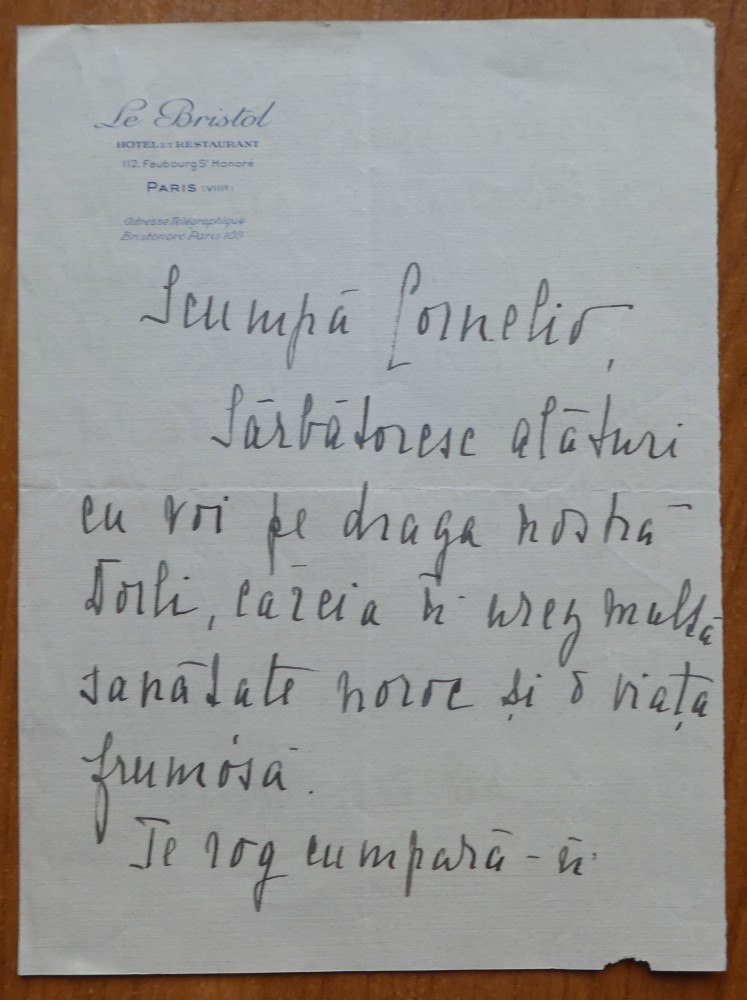 Le Bristol
HOTEL ET RESTAURANT
112, Faubourg St Honoré
PARIS (VIIIe)
Adresse Télégraphique
Bristonore Paris 109
Scumpă Cornelio,
Sărbătoresc alături
cu voi pe draga nostră
Dorli, căreia ĭi urez multă
sanătate noroc și o viața
frumósă.
Te rog cumpară-ĭi